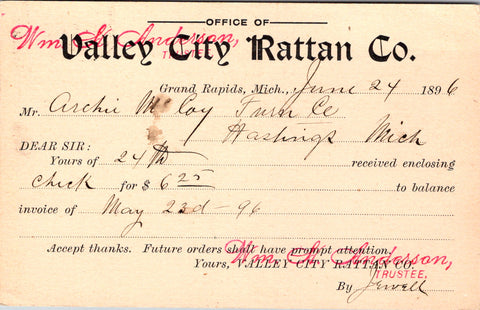 OFFICE OF
Wm. S. Anderson,
TRUSTEE.
Valley City Rattan Co.
Grand Rapids, Mich., June 24 1896
Mr. Archie McCoy Furn Co
Hastings Mich
DEAR SIR:
Yours of 24th received enclosing
check for $ 6 25 to balance
invoice of May 23d - 96
Accept thanks. Future orders shall have prompt attention.
Wm. S. Anderson,
Yours, VALLEY CITY RATTAN CO.
TRUSTEE.
By Jewell